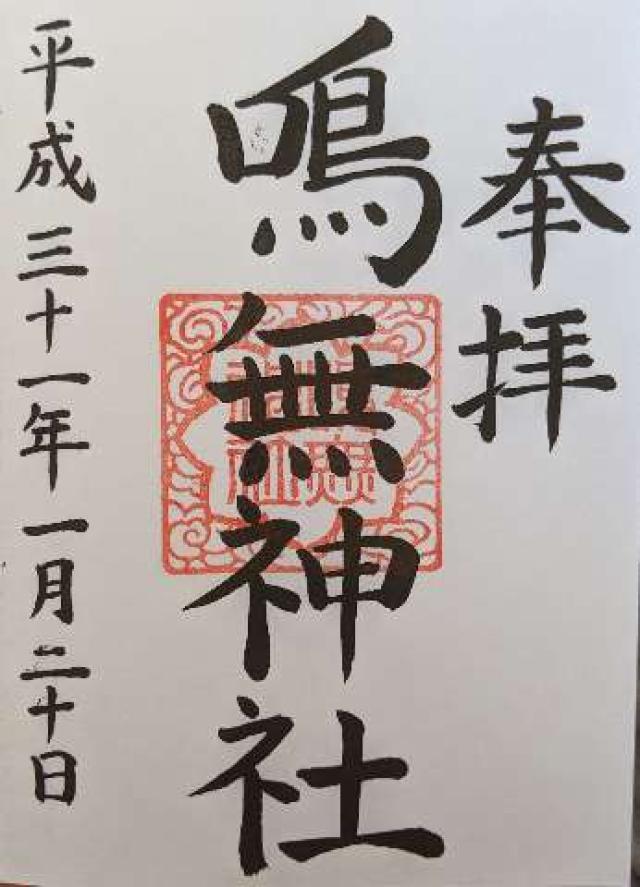 奉拝
鳴無神社
平成三十一年一月二十日